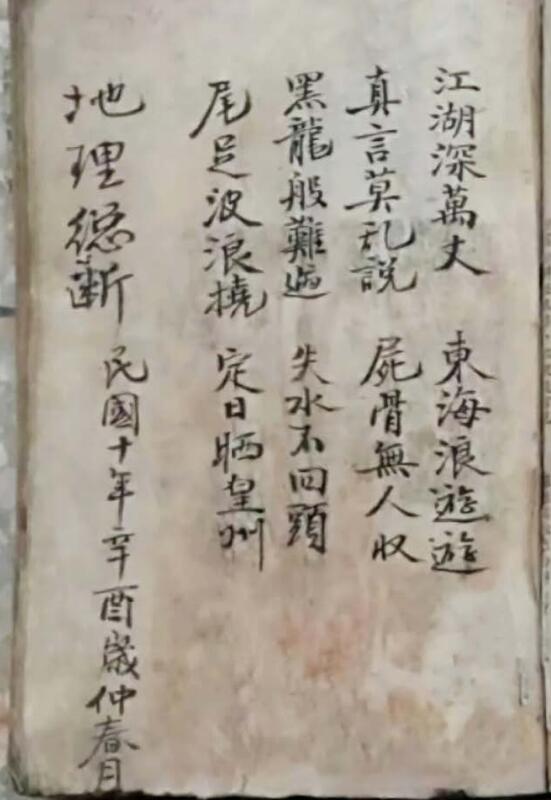 江湖深萬丈 東海浪遊遊
真言莫乱説 屍骨無人収
黑龍般難 失水不回頭
尾足波浪撓 定日晒皇州
地理緫断
民國十年辛酉歲仲春月